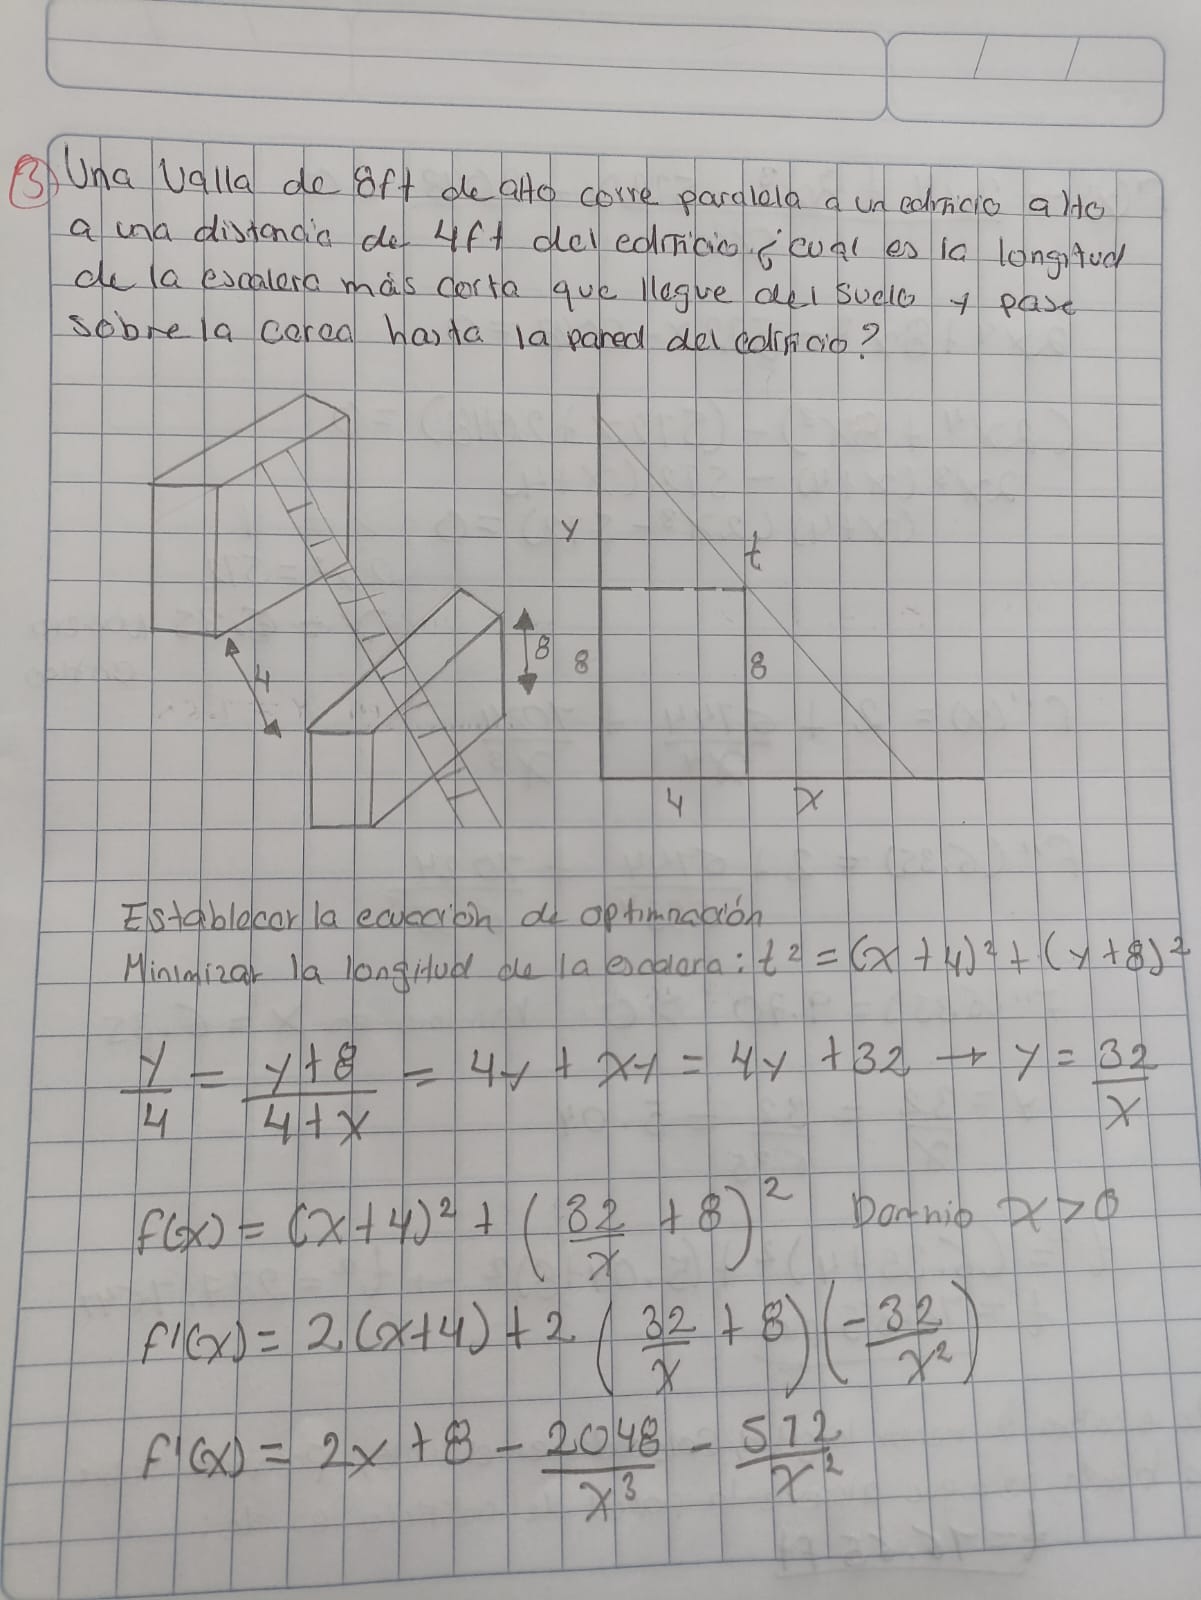 3) Una Valla de 8ft de alto corre paralela a un edificio alto
a una distancia de 4ft del edificio ¿cual es la longitud
de la escalera más corta que llegue del suelo y pase
sobre la cerca hasta la pared del edificio?
y
t
4
8
8
8
4
x
Establecer la ecuación de optimización
Minimizar la longitud de la escalera: t² = (x + 4)² + (y + 8)²
y/4 = (y + 8)/(4 + x) = 4y + xy = 4y + 32 → y = 32/x
f(x) = (x + 4)² + (32/x + 8)² Dominio x > 0
f'(x) = 2(x+4) + 2(32/x + 8)(-32/x²)
f'(x) = 2x + 8 - 2048/x³ - 512/x²